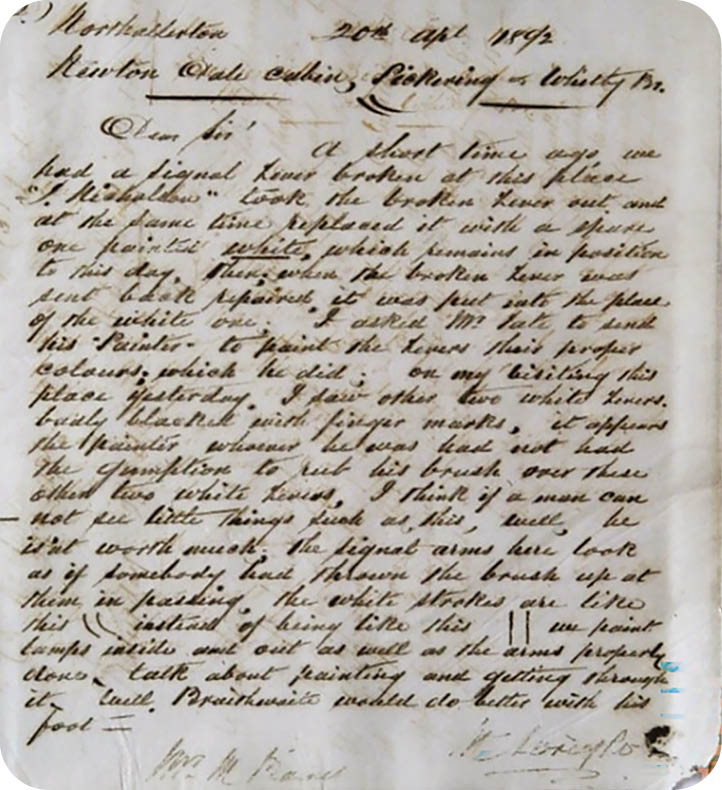 Northallerton 20th Apl 1892
Newton Dale Cabin, Pickering & Whitby Br.
Dear Sir'
A short time ago we
had a signal Lever broken at this place
"J. Nicholson" took the broken Lever out and
at the same time replaced it with a spare
one painted white, which remains in position
to this day, then, when the broken Lever was
sent back repaired it was put into the place
of the white one. I asked Mr Tate, to send
his "Painter" to paint the Levers their proper
colours, which he did; on my visiting this
place yesterday, I saw other two white Levers,
badly blacked with finger marks, it appears
the painter whoever he was had not had
the gumption to rub his brush over these
other two white Levers, I think if a man can
not see little things such as this, well, he
is'nt worth much, the signal arms here look
as if somebody had thrown the brush up at
them in passing, the white strokes are like
this \\ instead of being like this || we paint
lamps inside and out as well as the arms properly
done, talk about painting and getting through
it. Well, Braithwaite would do better with his
foot =
Mr M